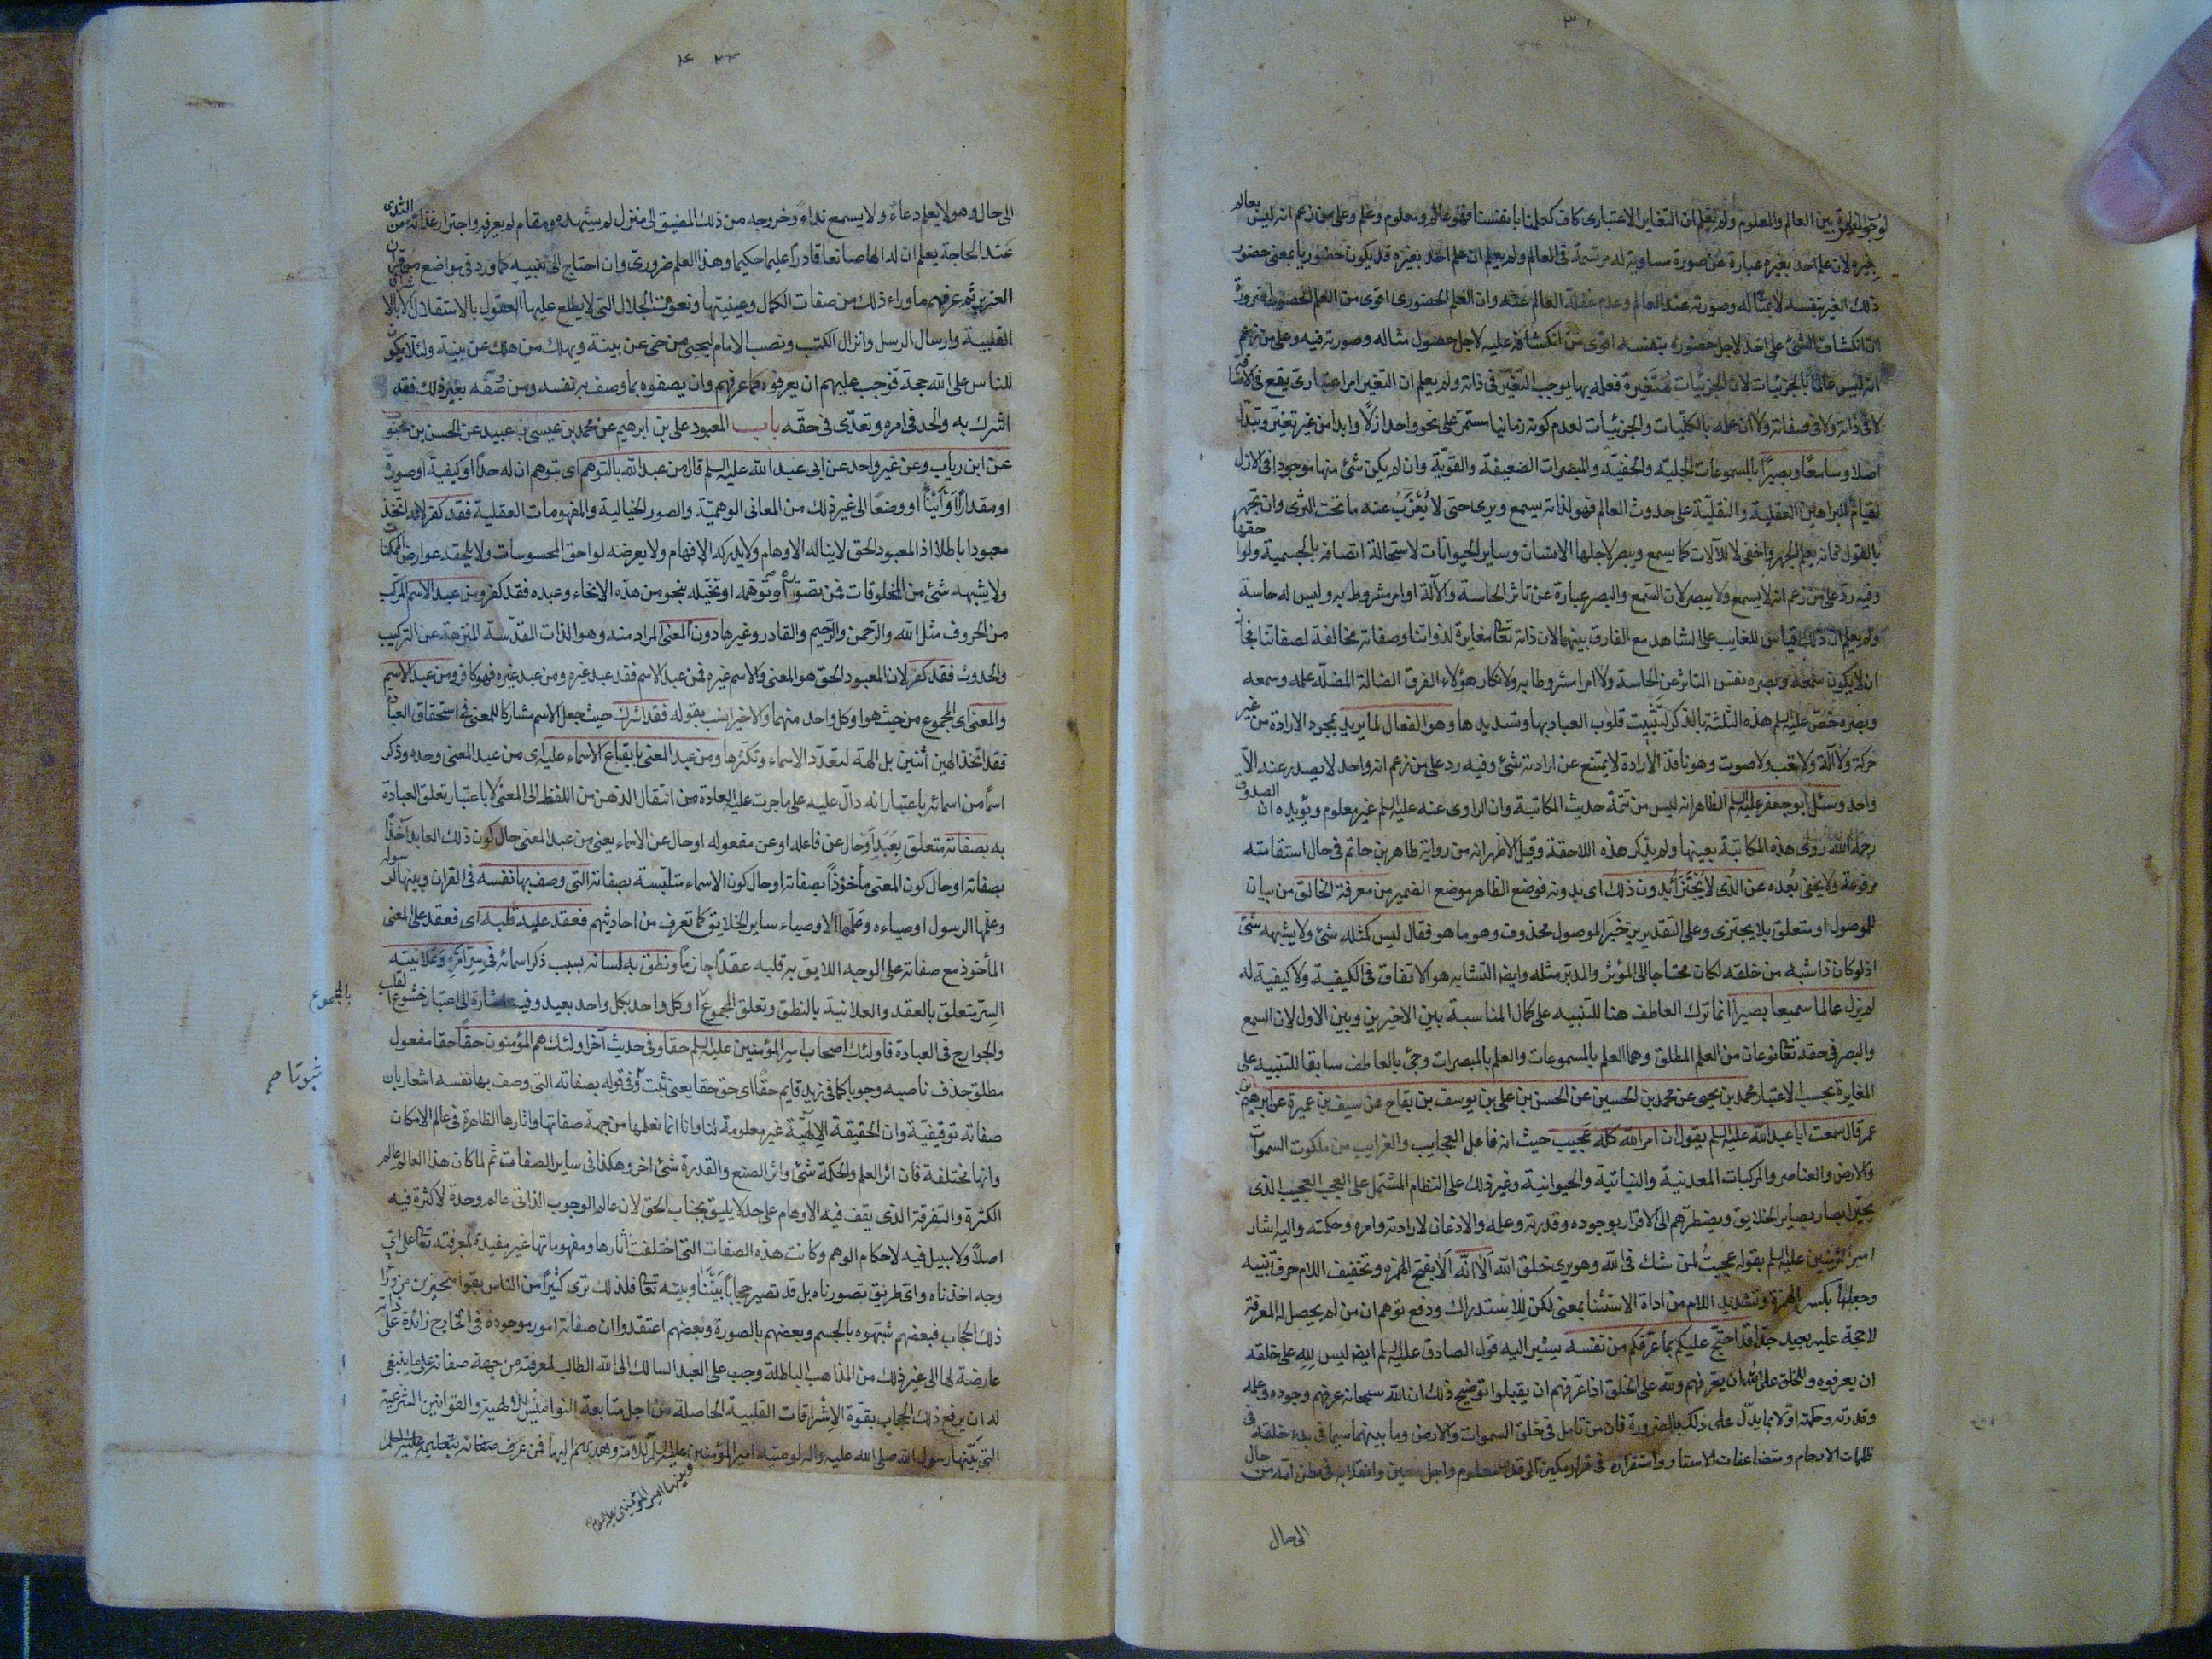 لوجوب المغايرة بين العالم والمعلوم ولم يعلم ان التغاير الاعتبارى كاف كعلمنا بانفسنا فهو عالم ومعلوم وعلم وعلى من زعم انه ليس بعالم
بغيره لان علم احد بغيره عبارة عن صورة مساوية له مرتسمة فى العالم ولم يعلم ان علم احد بغيره قد يكون حضوريا بمعنى حضور
ذلك الغير بنفسه لا بمثاله وصورته عند العالم وعدم غفلة العالم عنه وان العلم الحضورى اقوى من العلم الحصولى ضرورة
ان انكشاف الشئ على احد لاجل حضوره بنفسه اقوى من انكشافه عليه لاجل حصول مثاله وصورته فيه وعلى من زعم
انه ليس عالما بالجزئيات لان الجزئيات متغيرة فعلمه بها يوجب التغير فى ذاته ولم يعلم ان التغير امر اعتبارى يقع فى الاضافات
لا فى ذاته ولا فى صفاته ولان علمه بالكليات والجزئيات لعدم كونه زمانيا مستمر على نحو واحد ازلا وابدا من غير تغير وتبدل
اصلا وسامعا وبصيرا بالمسموعات الجلية والخفية والمبصرات الضعيفة والقوية وان لم يكن شئ منها موجودا فى الازل
لقيام البراهين العقلية والنقلية على حدوث العالم فهو لذاته يسمع ويرى حتى لا يعزب عنه ما تحت الثرى وان تجهر
بالقول فانه يعلم الجهر واخفى لا للآلات كما يسمع ويبصر لاجلها الانسان وساير الحيوانات لاستحالة اتصافه بالجسمية ولواحقها
وفيه رد على من زعم انه لا يسمع ولا يبصر لان السمع والبصر عبارة عن تاثر الحاسة والآلة او امر مشروط به وليس له حاسة
ولم يعلم ان ذلك قياس للغايب على الشاهد مع الفارق بينهما لان ذاته تعالى مغايرة لذواتنا وصفاته مخالفة لصفاتنا فجاز
ان لا يكون سمعه وبصره نفس التاثر عن الحاسة ولا امرا مشروطا به ولانكار هؤلاء الفرق الضالة المضلة علمه وسمعه
وبصره خص عليه السلم هذه الثلثة بالذكر لتثبيت قلوب العباد بها وتسديدها وهو الفعال لما يريد بمجرد الارادة من غير
حركة ولا آلة ولا تعب ولا صوت وهو نافذ الارادة لا يمتنع عن ارادته شئ وفيه رد على من زعم انه واحد لا يصدر عنه الا
واحد وسئل ابو جعفر عليه السلم الظاهر انه ليس من تتمة حديث المكاتبة وان الراوى عنه عليه السلم غير معلوم ويؤيده ان الصدوق
رحمه الله روى هذه المكاتبة بعينها ولم يذكر هذه اللاحقة وقيل الاظهر انه من رواية طاهر بن حاتم فى حال استقامته
مرفوعة ولا يخفى بعده عن الذى لا يجتزأ بدون ذلك اى بدونه فوضع الظاهر موضع الضمير من معرفة الخالق من بيان
للموصول او متعلق بلا يجتزى وعلى التقديرين خبر الموصول محذوف وهو ما هو فقال ليس كمثله شئ ولا يشبهه شئ
اذ لو كان ذا شبه من خلقه لكان محتاجا الى المؤثر والمدبر مثله وايضا التشابه هو الاتفاق فى الكيفية ولا كيفية له
لم يزل عالما سميعا بصيرا انما ترك العاطف هنا للتنبيه على كمال المناسبة بين الاخيرين وبين الاول لان السمع
والبصر فى حقه تعالى نوعان من العلم المطلق وهما العلم بالمسموعات والعلم بالمبصرات وجئ بالعاطف سابقا للتنبيه على
المغايرة بحسب الاعتبار محمد بن يحيى عن محمد بن الحسين عن الحسن بن على بن يوسف بن بقاح عن سيف بن عميرة عن ابرهيم بن
عمر قال سمعت ابا عبد الله عليه السلم يقول ان امر الله كله عجيب حيث انه فاعل العجايب والغرايب من ملكوت السموات
والارض والعناصر والمركبات المعدنية والنباتية والحيوانية وغير ذلك على النظام المشتمل على العجب العجيب الذى
يحير ابصار بصاير الخلايق ويضطرهم الى الاقرار بوجوده وقدرته وعلمه والاذعان لارادته وامره وحكمته واليه اشار
امير المؤمنين عليه السلم بقوله عجبت لمن شك فى الله وهو يرى خلق الله الا انه الا بفتح الهمزة وتخفيف اللام حرف تنبيه
وجعلها بكسر الهمزة وتشديد اللام من اداة الاستثنا بمعنى لكن للاستدراك ودفع توهم ان من لم يحصل له المعرفة
لا حجة عليه بعيد جدا قد احتج عليكم بما عرفكم من نفسه يشير اليه قول الصادق عليه السلم ايضا ليس لله على خلقه
ان يعرفوه وللخلق على الله ان يعرفهم ولله على الخلق اذا عرفهم ان يقبلوا توضيح ذلك ان الله سبحانه عرفهم وجوده وعلمه
وقدرته وحكمته اولا بما يدل على ذلك بالضرورة فان من تامل فى خلق السموات والارض وما بينهما سيما فى بدء خلقه فى
ظلمات الارحام ومتضاعفات الاستار واستقراره فى قرار مكين الى قدر معلوم واجل معين وانقلابه فى بطن امه من حال
الى حال
الى حال وهو لا يعلم دعاء ولا يسمع نداء وخروجه من ذلك المضيق الى منزل لم يشهده ومقام لم يعرفه واجترار غذائه من الثدى
عند الحاجة يعلم ان له الها صانعا قادرا عليما حكيما وهذا العلم ضرورى وان احتاج الى تنبيه كما ورد فى مواضع من القران
العزيز ثم عرفهم ما وراء ذلك من صفات الكمال وعينيتها ونعوت الجلال التى لا يطلع عليها العقول بالاستقلال الا بالا
القلبية وارسال الرسل وانزال الكتب ونصب الامام ليحيى من حى عن بينة ويهلك من هلك عن بينة ولئلا يكون
للناس على الله حجة فوجب عليهم ان يعرفوه كما عرفهم وان يصفوه بما وصف به نفسه ومن وصفه بغير ذلك فقد
اشرك به والحد فى امره وتعدى فى حقه باب المعبود على بن ابرهيم عن محمد بن عيسى بن عبيد عن الحسن بن محبوب
عن ابن رياب وعن غير واحد عن ابى عبد الله عليه السلم قال من عبد الله بالتوهم اى بتوهم ان له حدا او كيفية او صورة
او مقدارا او اينا او وضعا الى غير ذلك من المعانى الوهمية والصور الخيالية والمفهومات العقلية فقد كفر لانه اتخذ
معبودا باطلا اذ المعبود الحق لا يناله الاوهام ولا يدركه الافهام ولا يعرضه لواحق المحسوسات ولا يلحقه عوارض الممكنات
ولا يشبهه شئ من المخلوقات فمن تصوره او توهمه او تخيله بنحو من هذه الانحاء وعبده فقد كفر ومن عبد الاسم المركب
من الحروف مثل الله والرحمن والرحيم والقادر وغيرها دون المعنى المراد منه وهو الذات المقدسة المنزهة عن التركيب
والحدوث فقد كفر لان المعبود الحق هو المعنى والاسم غيره فمن عبد الاسم فقد عبد غيره ومن عبد غيره فهو كافر ومن عبد الاسم
والمعنى اى المجموع من حيث هو او كل واحد منهما والاخير انسب بقوله فقد اشرك حيث جعل الاسم مشاركا للمعنى فى استحقاق العبادة
فقد اتخذ الهين اثنين بل الهة لتعدد الاسماء وتكثرها ومن عبد المعنى بايقاع الاسماء عليه اى من عبد المعنى وحده وذكر
اسما من اسمائه باعتبار انه دال عليه على ما جرت عليه العادة من انتقال الذهن من اللفظ الى المعنى لا باعتبار تعلق العبادة
به بصفاته متعلق بعبد او حال عن فاعله او عن مفعوله او حال عن الاسماء يعنى من عبد المعنى حال كون ذلك العابد آخذا
بصفاته او حال كون المعنى مأخوذا بصفاته او حال كون الاسماء متلبسة بصفاته التى وصف بها نفسه فى القران وبينها لرسوله
وعلمها الرسول اوصياءه وعلمها الاوصياء ساير الخلايق كما تعرف من احاديثهم فعقد عليه قلبه اى فعقد على المعنى
المأخوذ مع صفاته على الوجه اللايق به قلبه عقدا جازما ونطق به لسانه بسبب ذكر اسمائه فى سر امره وعلانيته
السر متعلق بالعقد والعلانية بالنطق وتعلق المجموع بالمجموع او كل واحد بكل واحد بعيد وفيه اشارة الى اعتبار خشوع القلب
والجوارح فى العبادة فاولئك اصحاب امير المؤمنين عليه السلم حقا وفى حديث آخر اولئك هم المؤمنون حقا حقا مفعول
مطلق حذف ناصبه وجوبا كما فى زيد قايم حقا اى حق حقا يعنى ثبت ثبوتا صح وفى قوله بصفاته التى وصف بها نفسه اشعار بان
صفاته توقيفية وان الحقيقة الالهية غير معلومة لنا وانا انما نعلمها من جهة صفاتها واثارها الظاهرة فى عالم الامكان
وانها مختلفة فان اثر العلم والحكمة شئ واثر الصنع والقدرة شئ اخر وهكذا فى ساير الصفات ثم لما كان هذا العالم عالم
الكثرة والتفرقة الذى يقف فيه الاوهام على حد لا يليق بجناب الحق لان عالم الوجوب الذاتى عالم وحدة لا كثرة فيه
اصلا ولا سبيل فيه لاحكام الوهم وكانت هذه الصفات التى اختلفت آثارها ومفهوماتها غير مفيدة لمعرفته تعالى على اى
وجه اخذناه واى طريق تصورناه بل قد تصير حجابا بيننا وبينه تعالى فلذلك ترى كثيرا من الناس بقوا متحيرين من وراء
ذلك الحجاب فبعضهم شبهوه بالجسم وبعضهم بالصورة وبعضهم اعتقدوا ان صفاته امور موجودة فى الخارج زائدة على ذاته
عارضة لها الى غير ذلك من المذاهب الباطلة وجب على العبد السالك الى الله الطالب لمعرفته من جهة صفاته على ما ينبغى
له ان يرفع ذلك الحجاب بقوة الاشراقات القلبية الحاصلة من اجل متابعة النواميس الالهية والقوانين الشرعية
التى بينها رسول الله صلى الله عليه واله لوصيه امير المؤمنين وبينها امير المؤمنين عليه السلم للامة وهديهم اليها فمن عرف صفاته بتعليمه عليه السلم